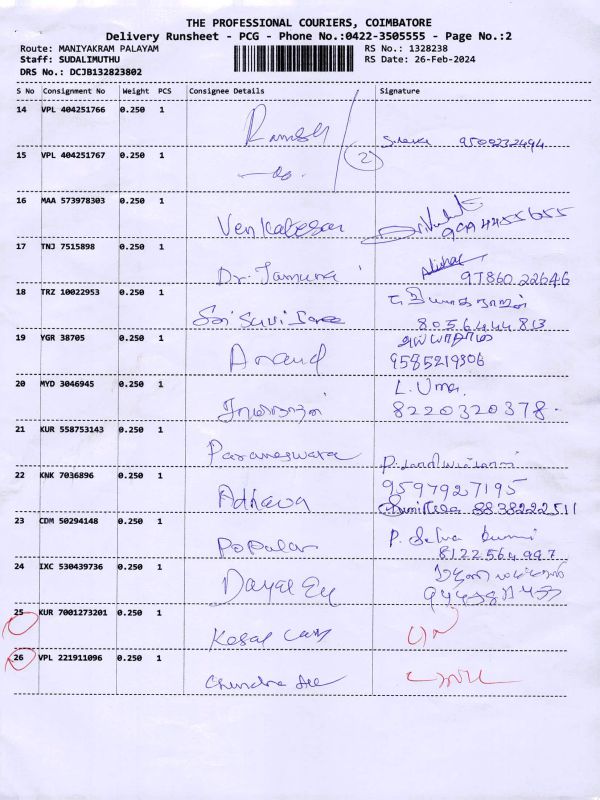 THE PROFESSIONAL COURIERS, COIMBATORE
Delivery Runsheet - PCG - Phone No.:0422-3505555 - Page No.:2
Route: MANIYAKRAM PALAYAM RS No.: 1328238
Staff: SUDALIMUTHU RS Date: 26-Feb-2024
DRS No.: DCJB132823802
S No Consignment No Weight PCS Consignee Details Signature
14 VPL 404251766 0.250 1 Ramesh 9500232494
15 VPL 404251767 0.250 1 —do. 2
16 MAA 573978303 0.250 1 Venkatesan
17 TNJ 7515898 0.250 1 Dr. Jamuna
97860 22646
18 TRZ 10022953 0.250 1
8056444813
19 YGR 38705 0.250 1 Anand
9585219306
20 MYD 3046945 0.250 1 L. Uma
8220320378.
21 KUR 558753143 0.250 1 Parameswara
22 KNK 7036896 0.250 1 9597927195
8838222511
23 CDM 50294148 0.250 1 Popular P. Selva
8122564997
24 IXC 530439736 0.250 1
25 KUR 7001273201 0.250 1
26 VPL 221911096 0.250 1 Chandra